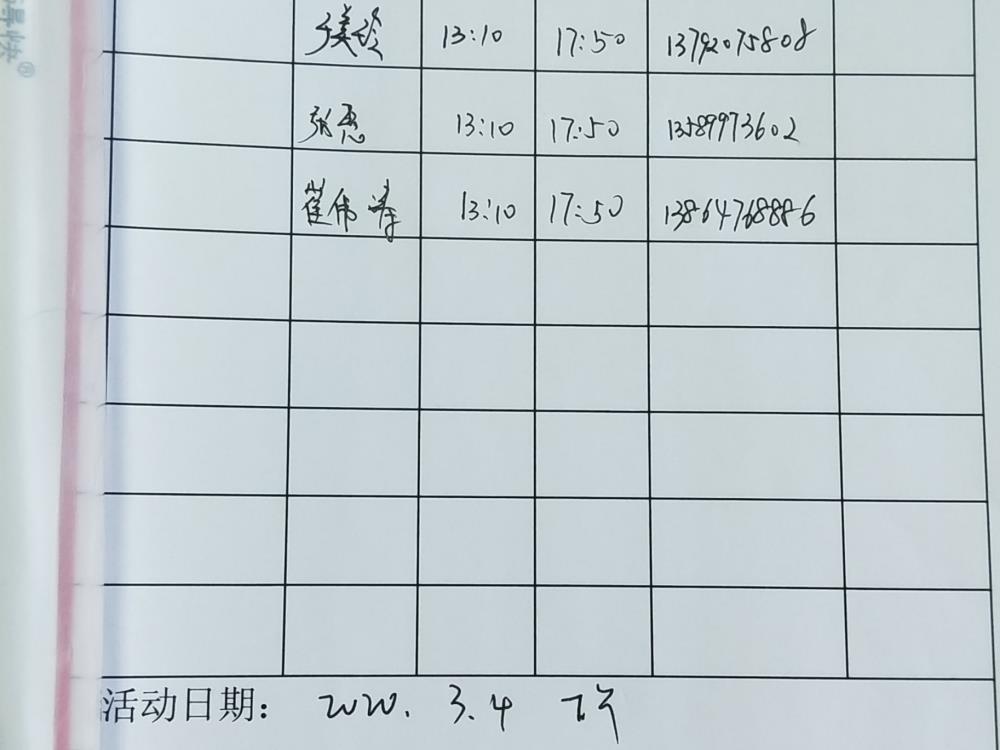 得快®
于美玲 13:10 17:50 13792075808
张惠 13:10 17:50 13589973602
崔伟涛 13:10 17:50 13864768886
活动日期: 2020. 3.4 下午